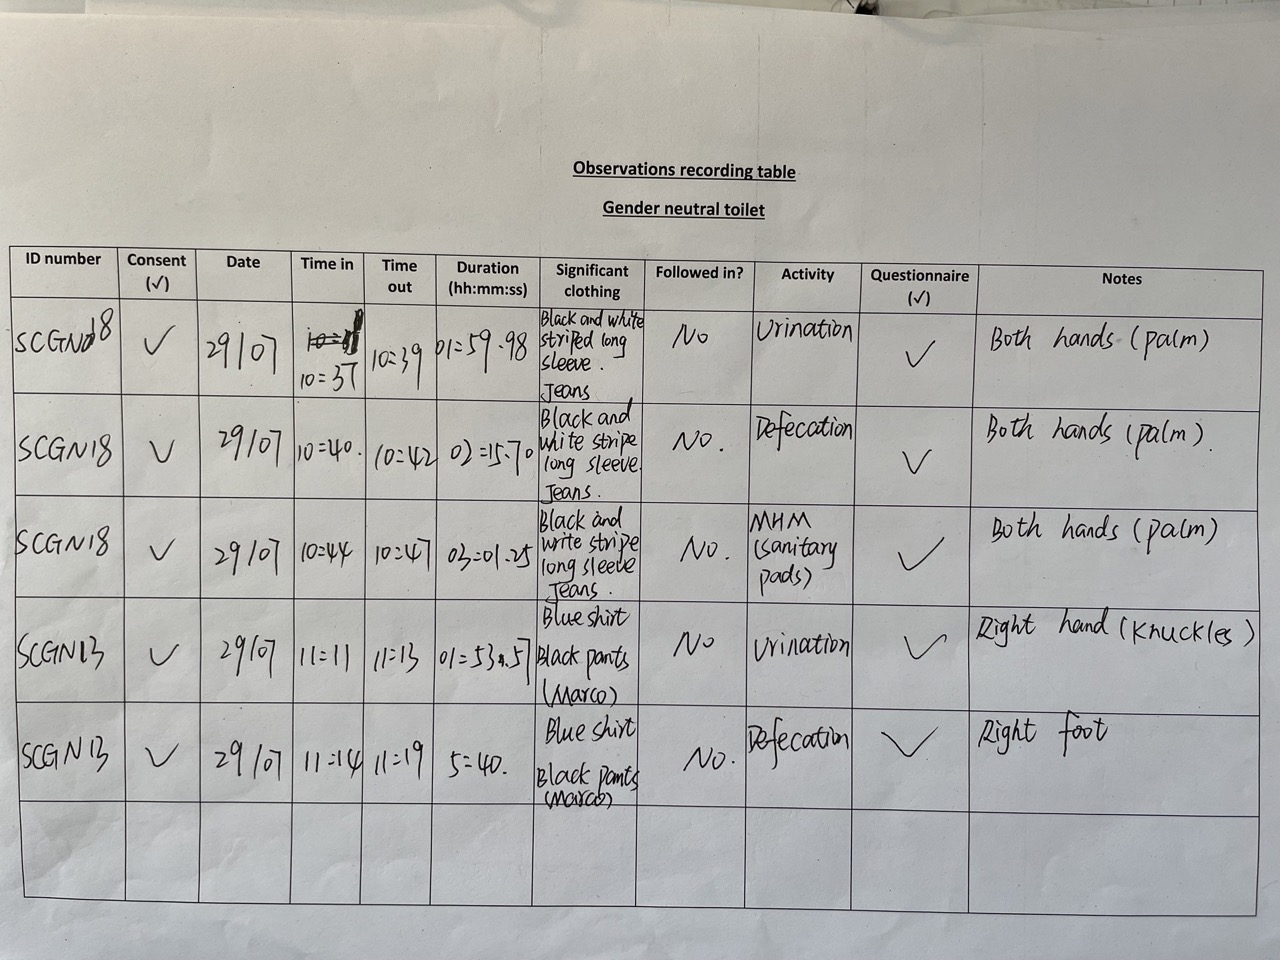 Observations recording table
Gender neutral toilet
ID number Consent (√) Date Time in Time out Duration (hh:mm:ss) Significant clothing Followed in? Activity Questionnaire (√) Notes
SCGN18 ✓ 29/07 10=37 10=39 01=59.98 Black and white striped long sleeve. Jeans No Urination ✓ Both hands (palm)
SCGN18 ✓ 29/07 10=40. 10=42 02=15.70 Black and white stripe long sleeve. Jeans. No. Defecation ✓ Both hands (palm).
SCGN18 ✓ 29/07 10=44 10=47 03=01.25 Black and write stripe long sleeve Jeans. No. MHM (sanitary pads) ✓ Both hands (palm)
SCGN13 ✓ 29/07 11=11 11=13 01=53.57 Blue shirt Black pants (Marco) No Urination ✓ Right hand (Knuckles)
SCGN13 ✓ 29/07 11=14 11=19 5=40. Blue shirt Black pants (Marco) No. Defecation ✓ Right foot